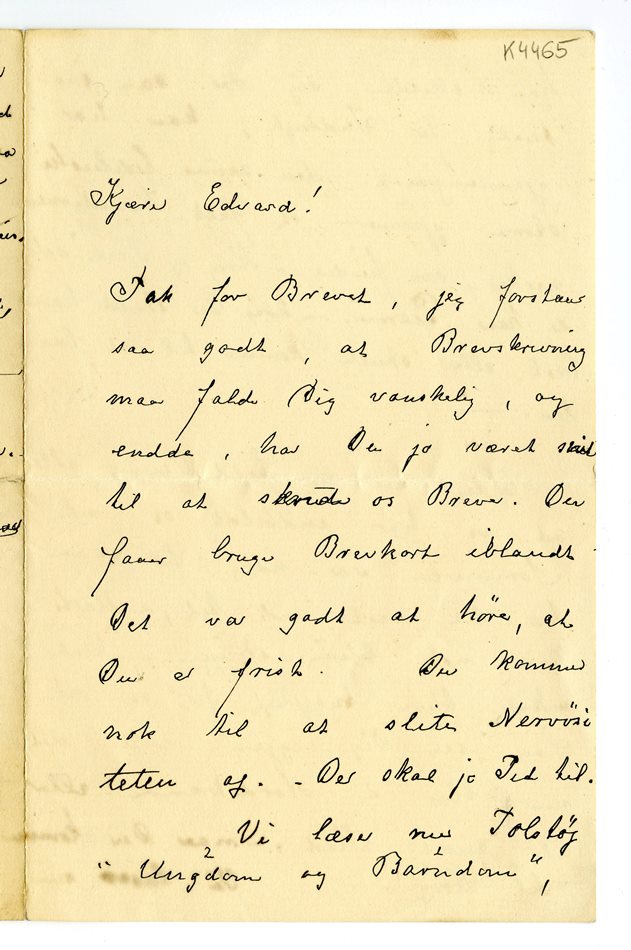 K4465
Kjære Edvard!
Tak for Brevet, jeg forstaar
saa godt, at Brevskrivning
maa falde Dig vanskelig, og
endda, har Du jo været
til at skrive os Breve. Du
faaer bruge Brevkort iblandt
Det var godt at høre, at
Du er frisk. Du kommer
nok til at slite Nervøsi
teten af. – Der skal jo Tid til.
Vi læser nu Tolstøj
"Ungdom og Barndom",